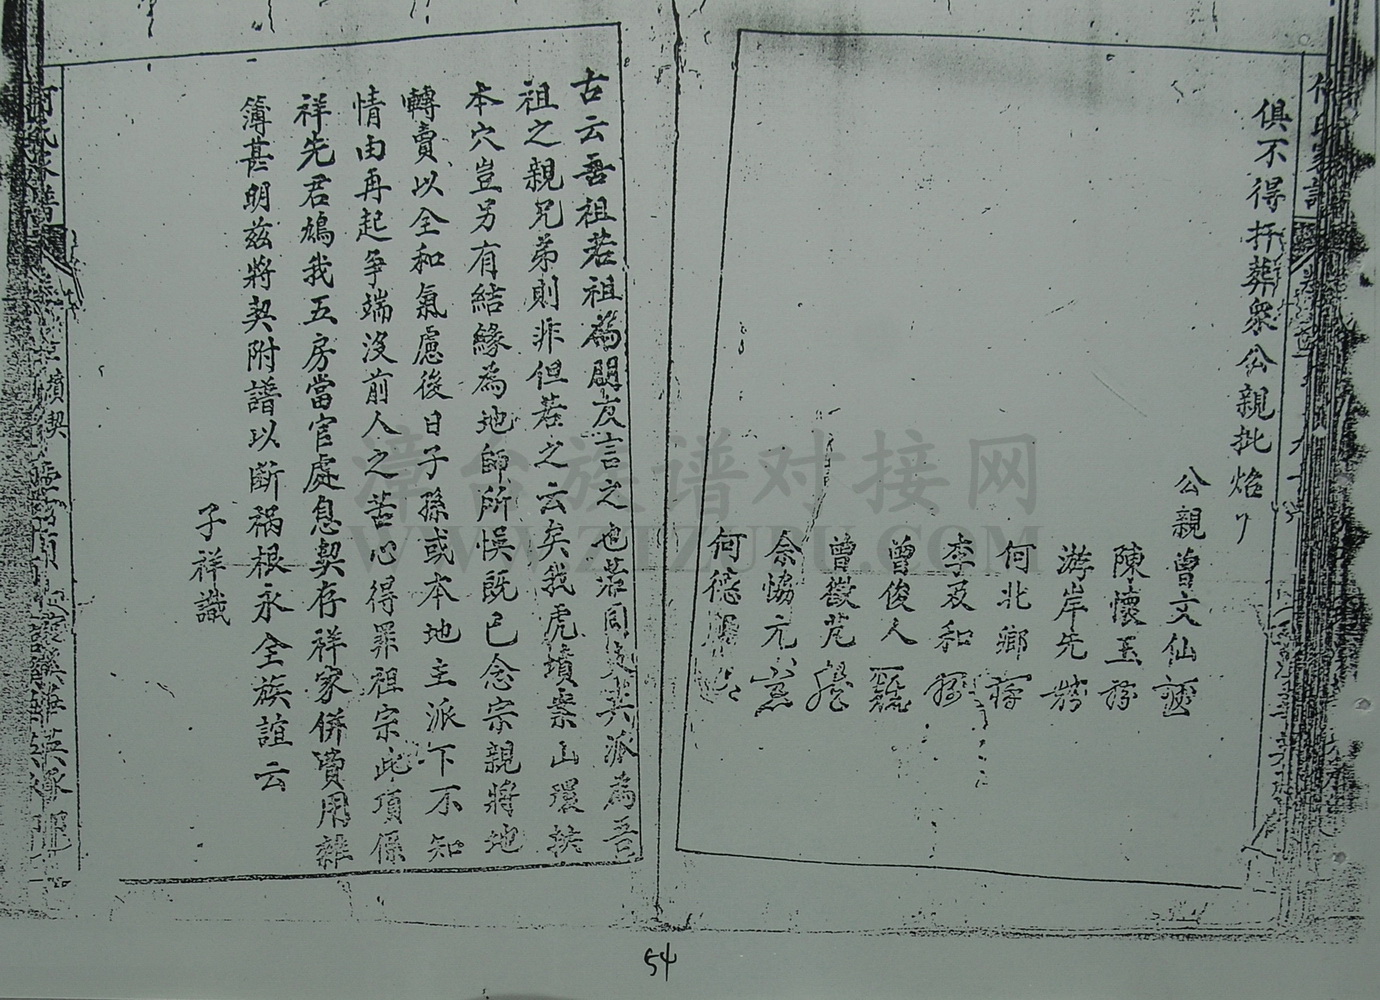 俱不得扦葬衆公親批焰
公親曾文仙
陳懷玉
游岸先
何北鄉
李及和
曾俊人
曾徵芃
余協元
何德
古云吾祖若祖為朋友言之也若同支共派為吾
祖之親兄弟則非但若之云矣我虎墳案山環抉
本穴豈另有結緣為地師所悞既已念宗親將地
轉賣以全和氣慮後日子孫或本地主派下不知
情由再起爭端沒前人之苦心得罪祖宗此項係
祥先君鳩我五房當官處息契存祥家併費用雜
簿甚明茲將契附譜以斷禍根永全族誼云
子祥識
何氏家譜
墳契
漳台族谱对接网
WWW.ZTZUPU.COM
54